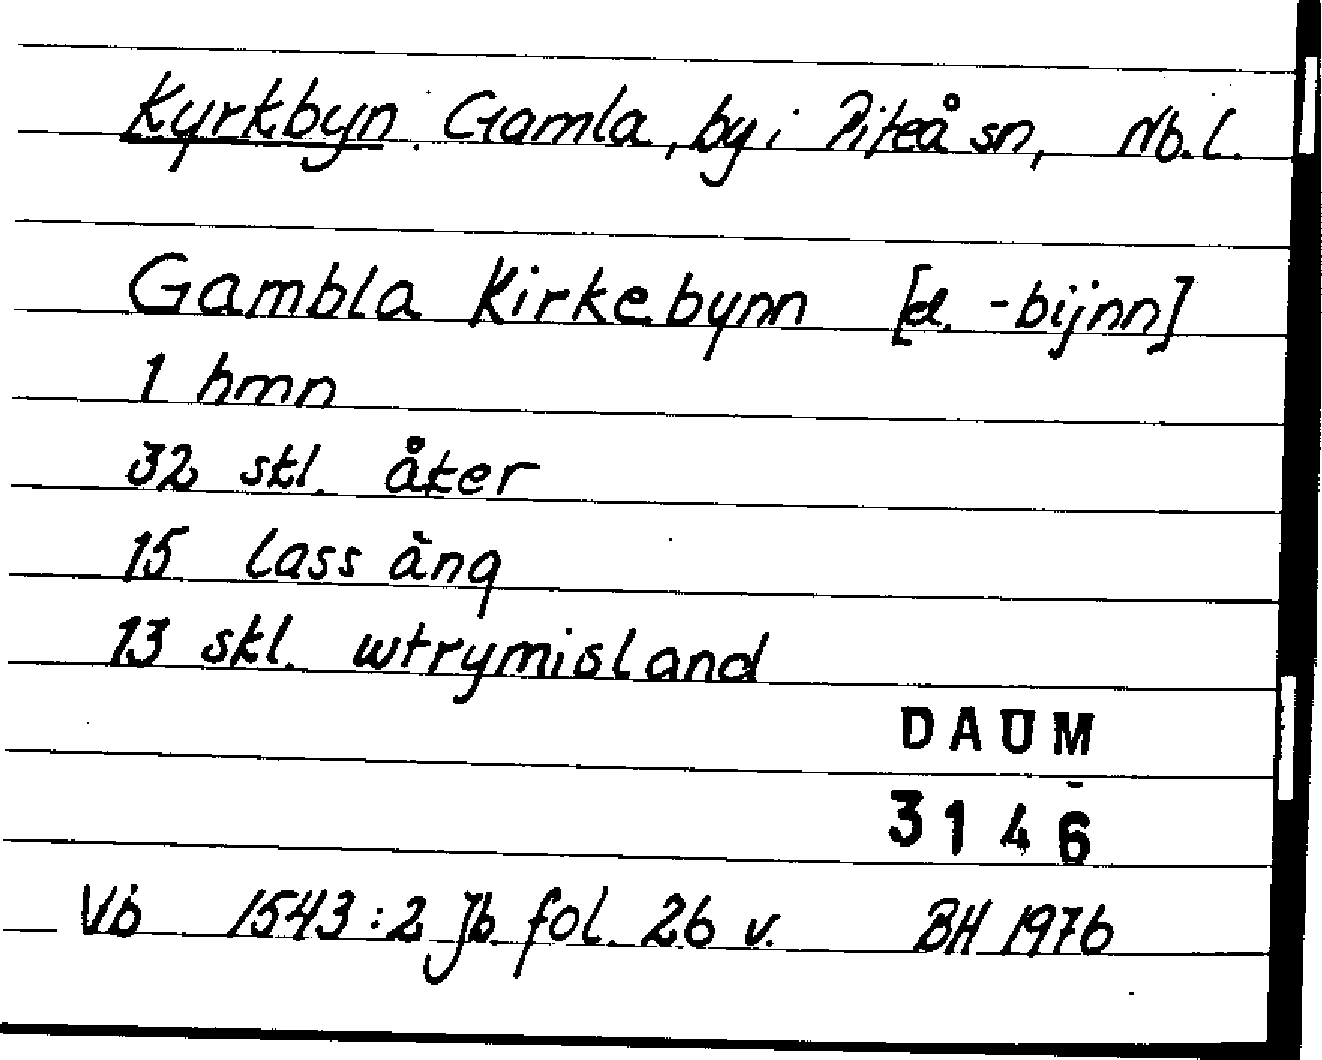 Kyrkbyn. Gamla, by i Piteå sn, Nb.l.
Gambla Kirkebynn [el. -bijnn]
1 hmn
32 skl. åker
15 lass äng
13 skl. wtrymisland
DAUM
3146
Vb 1543:2 Jb fol. 26 v. BH 1976